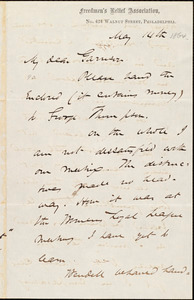 Freedmen's Relief Association,
No. 424 Walnut Street, Philadelphia.
May 14th 1864
My dear Garrison
Please hand the
Enclosed (it contains money)
to George Thompson.
on the whole I
am not dissatisfied with
our meeting. The disprac-
made no head-
way. How it was at
the Womans Loyal League
meeting I have yet to
learn.
Wendell behaved hand-